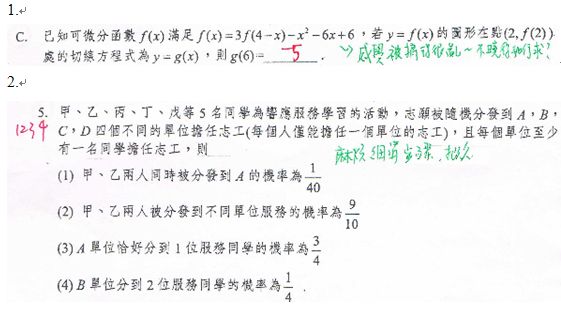 1.
C. 已知可微分函數 f(x) 滿足 f(x)=3f(4−x)−x²−6x+6,若 y=f(x) 的圖形在點(2, f(2))
處的切線方程式為 y=g(x),則 g(6)= -5 . 
2.
5. 甲、乙、丙、丁、戊等 5 名同學為響應服務學習的活動,志願被隨機分發到 A,B,
1234 C,D 四個不同的單位擔任志工(每個人僅能擔任一個單位的志工),且每個單位至少
有一名同學擔任志工,則
(1) 甲、乙兩人同時被分發到 A 的機率為 1/40
(2) 甲、乙兩人被分發到不同單位服務的機率為 9/10
(3) A 單位恰好分到 1 位服務同學的機率為 3/4
(4) B 單位分到 2 位服務同學的機率為 1/4 .